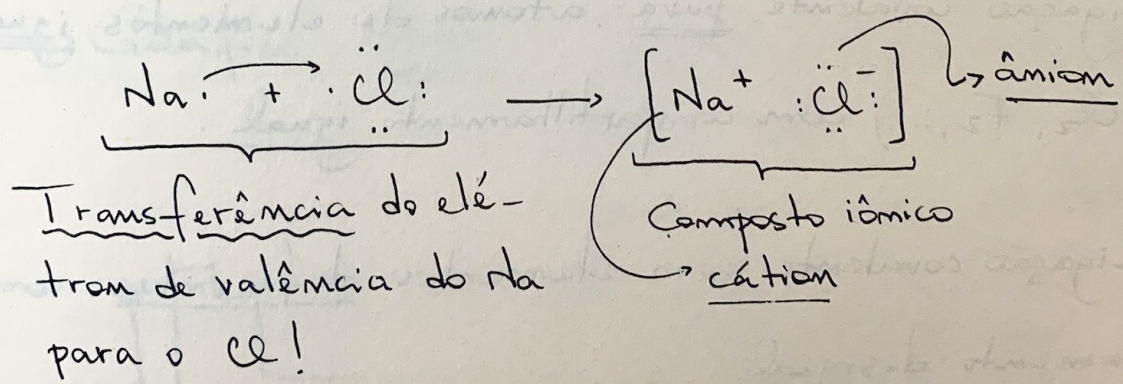 Na· + ·Cl: → [Na⁺ :Cl:⁻] → ânion
Transferência do elé-
tron de valência do Na
para o Cl!
Composto iônico
cátion